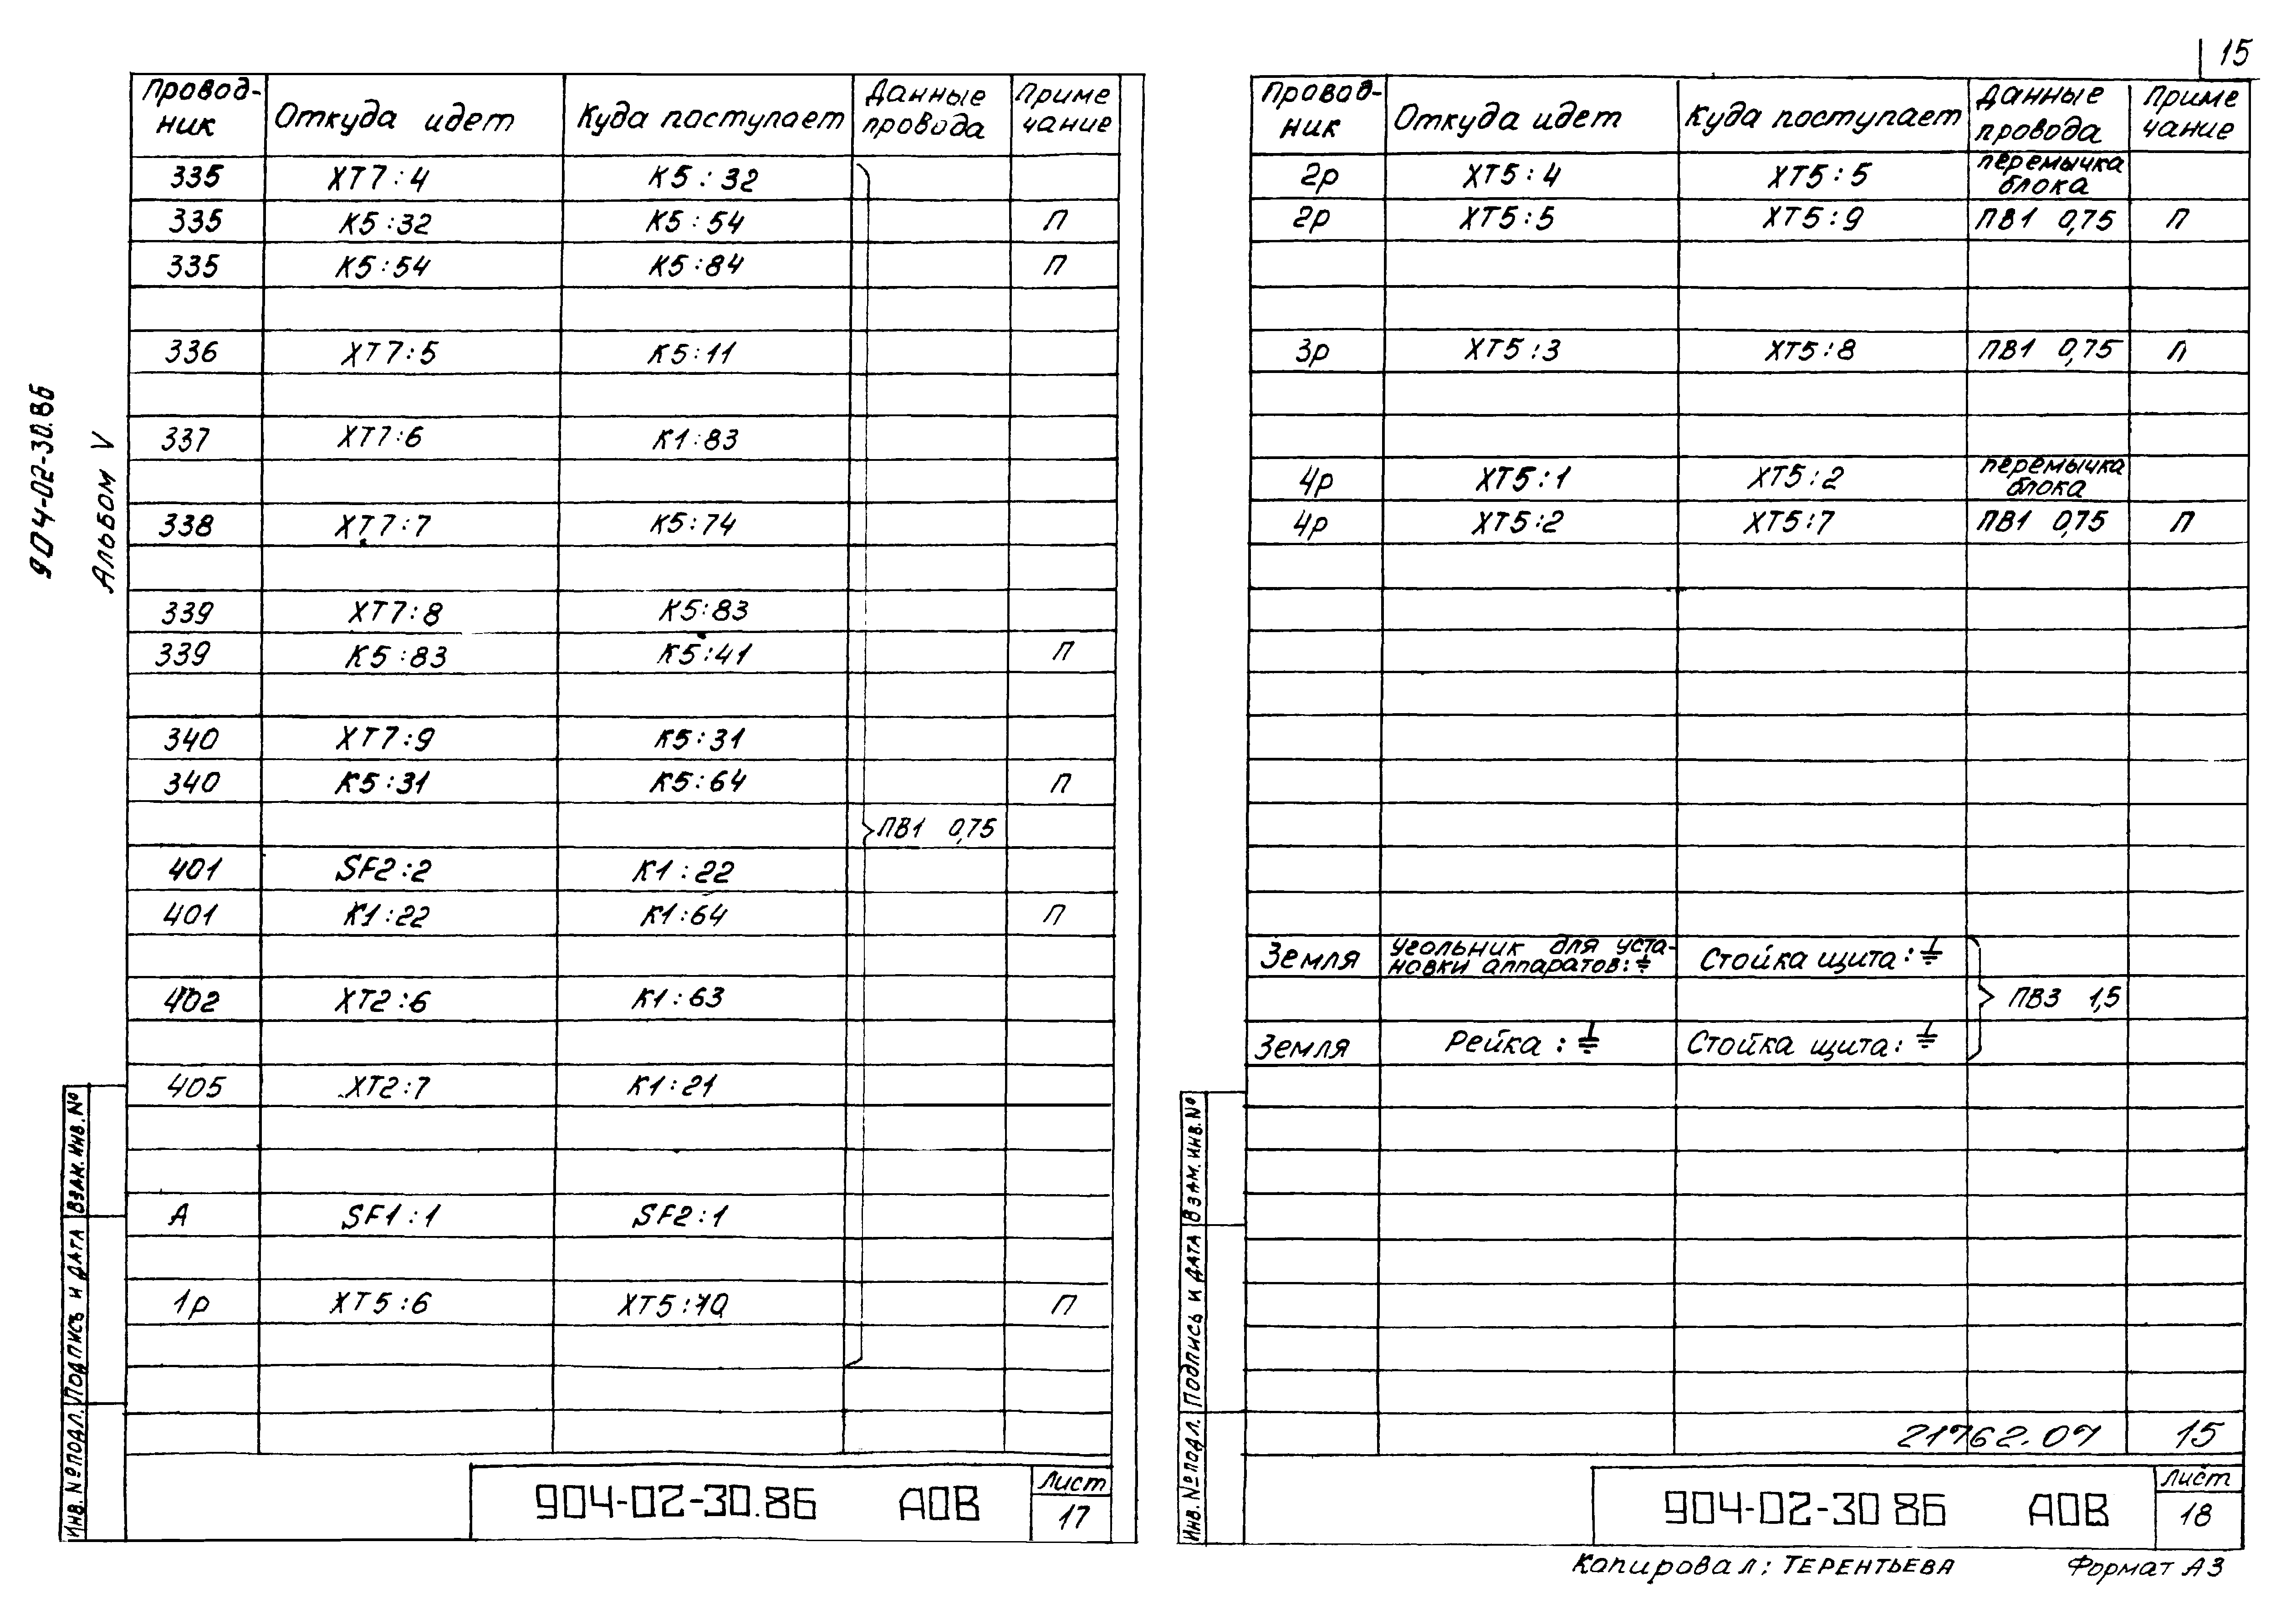 15
904-02-30.86
Альбом V
Провод-ник Откуда идет Куда поступает Данные провода Приме чание
335 XT7:4 K5:32
335 K5:32 K5:54 П
335 K5:54 K5:84 П
336 XT7:5 K5:11
337 XT7:6 K1:83
338 XT7:7 K5:74
339 XT7:8 K5:83
339 K5:83 K5:41 П
340 XT7:9 K5:31
340 K5:31 K5:64 П
ПВ1 0,75
401 SF2:2 K1:22
401 K1:22 K1:64 П
402 XT2:6 K1:63
405 XT2:7 K1:21
А SF1:1 SF2:1
1р XT5:6 XT5:10 П
Инв.№подл. Подпись и дата Взам.инв.№
904-02-30.86 АОВ
Лист
17
Провод-ник Откуда идет Куда поступает Данные провода Приме чание
2р XT5:4 XT5:5 перемычка блока
2р XT5:5 XT5:9 ПВ1 0,75 П
3р XT5:3 XT5:8 ПВ1 0,75 П
4р XT5:1 XT5:2 перемычка блока
4р XT5:2 XT5:7 ПВ1 0,75 П
Земля угольник для уста-новки аппаратов:⏚ Стойка щита:⏚
ПВ3 1,5
Земля Рейка:⏚ Стойка щита:⏚
21762.07 15
Инв.№подл. Подпись и дата Взам.инв.№
904-02-30 86 АОВ
Лист
18
Копировал: Терентьева Формат А3